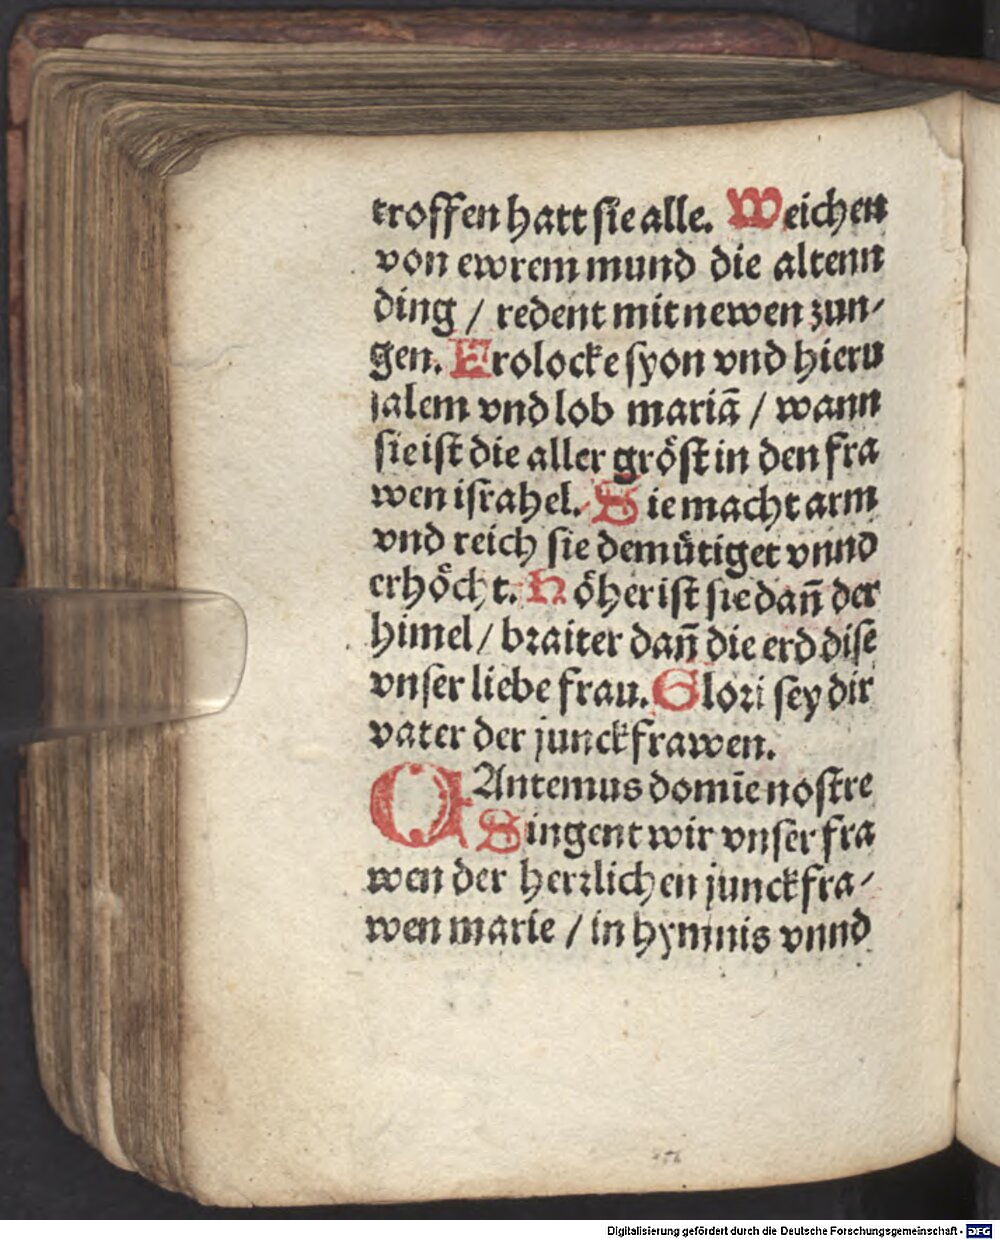 troffen hatt sie alle. Weichen
von ewrem mund die altenn
ding / redent mit newen zun⸗
gen. Erolocke syon vnd hieru
salem vnd lob mariā / wann
sie ist die aller gröst in den fra
wen israhel. Sie macht arm
vnd reich sie demütiget vnnd
erhöcht. Höher ist sie dañ der
himel / braiter dañ die erd dise
vnser liebe frau. Glori sey dir
vater der junckfrawen.
CAntemus domīe nostre
Singent wir vnser fra
wen der herrlichen junckfra⸗
wen marie / in hymnis vnnd
Digitalisierung gefördert durch die Deutsche Forschungsgemeinschaft - DFG